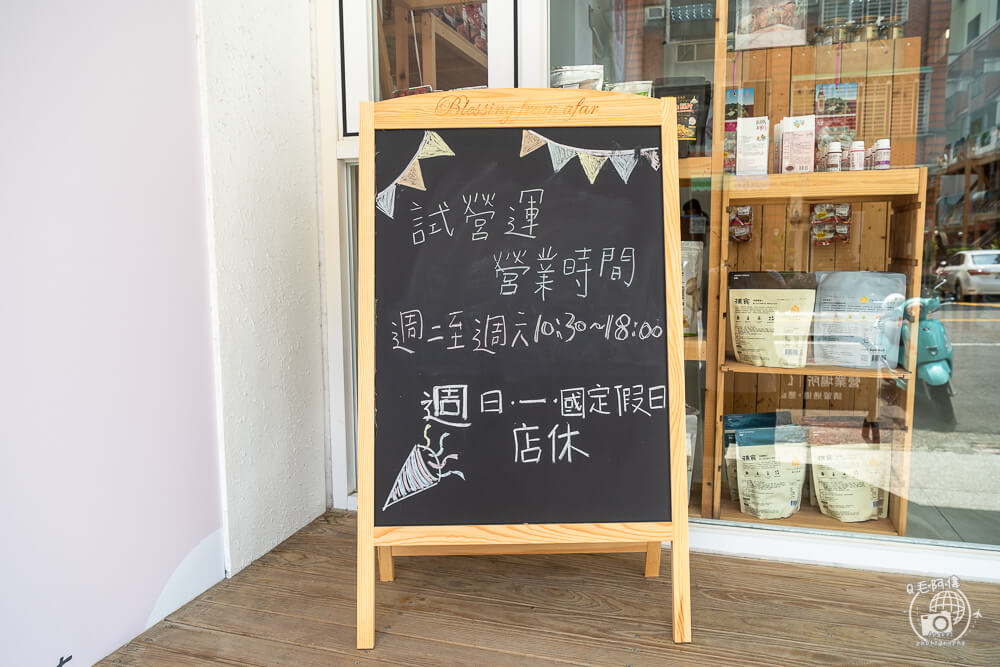 Blessing from afar
試營運
營業時間
週二至週六10:30~18:00
週日·一·國定假日
店休
Q毛·阿偉
travel
photography